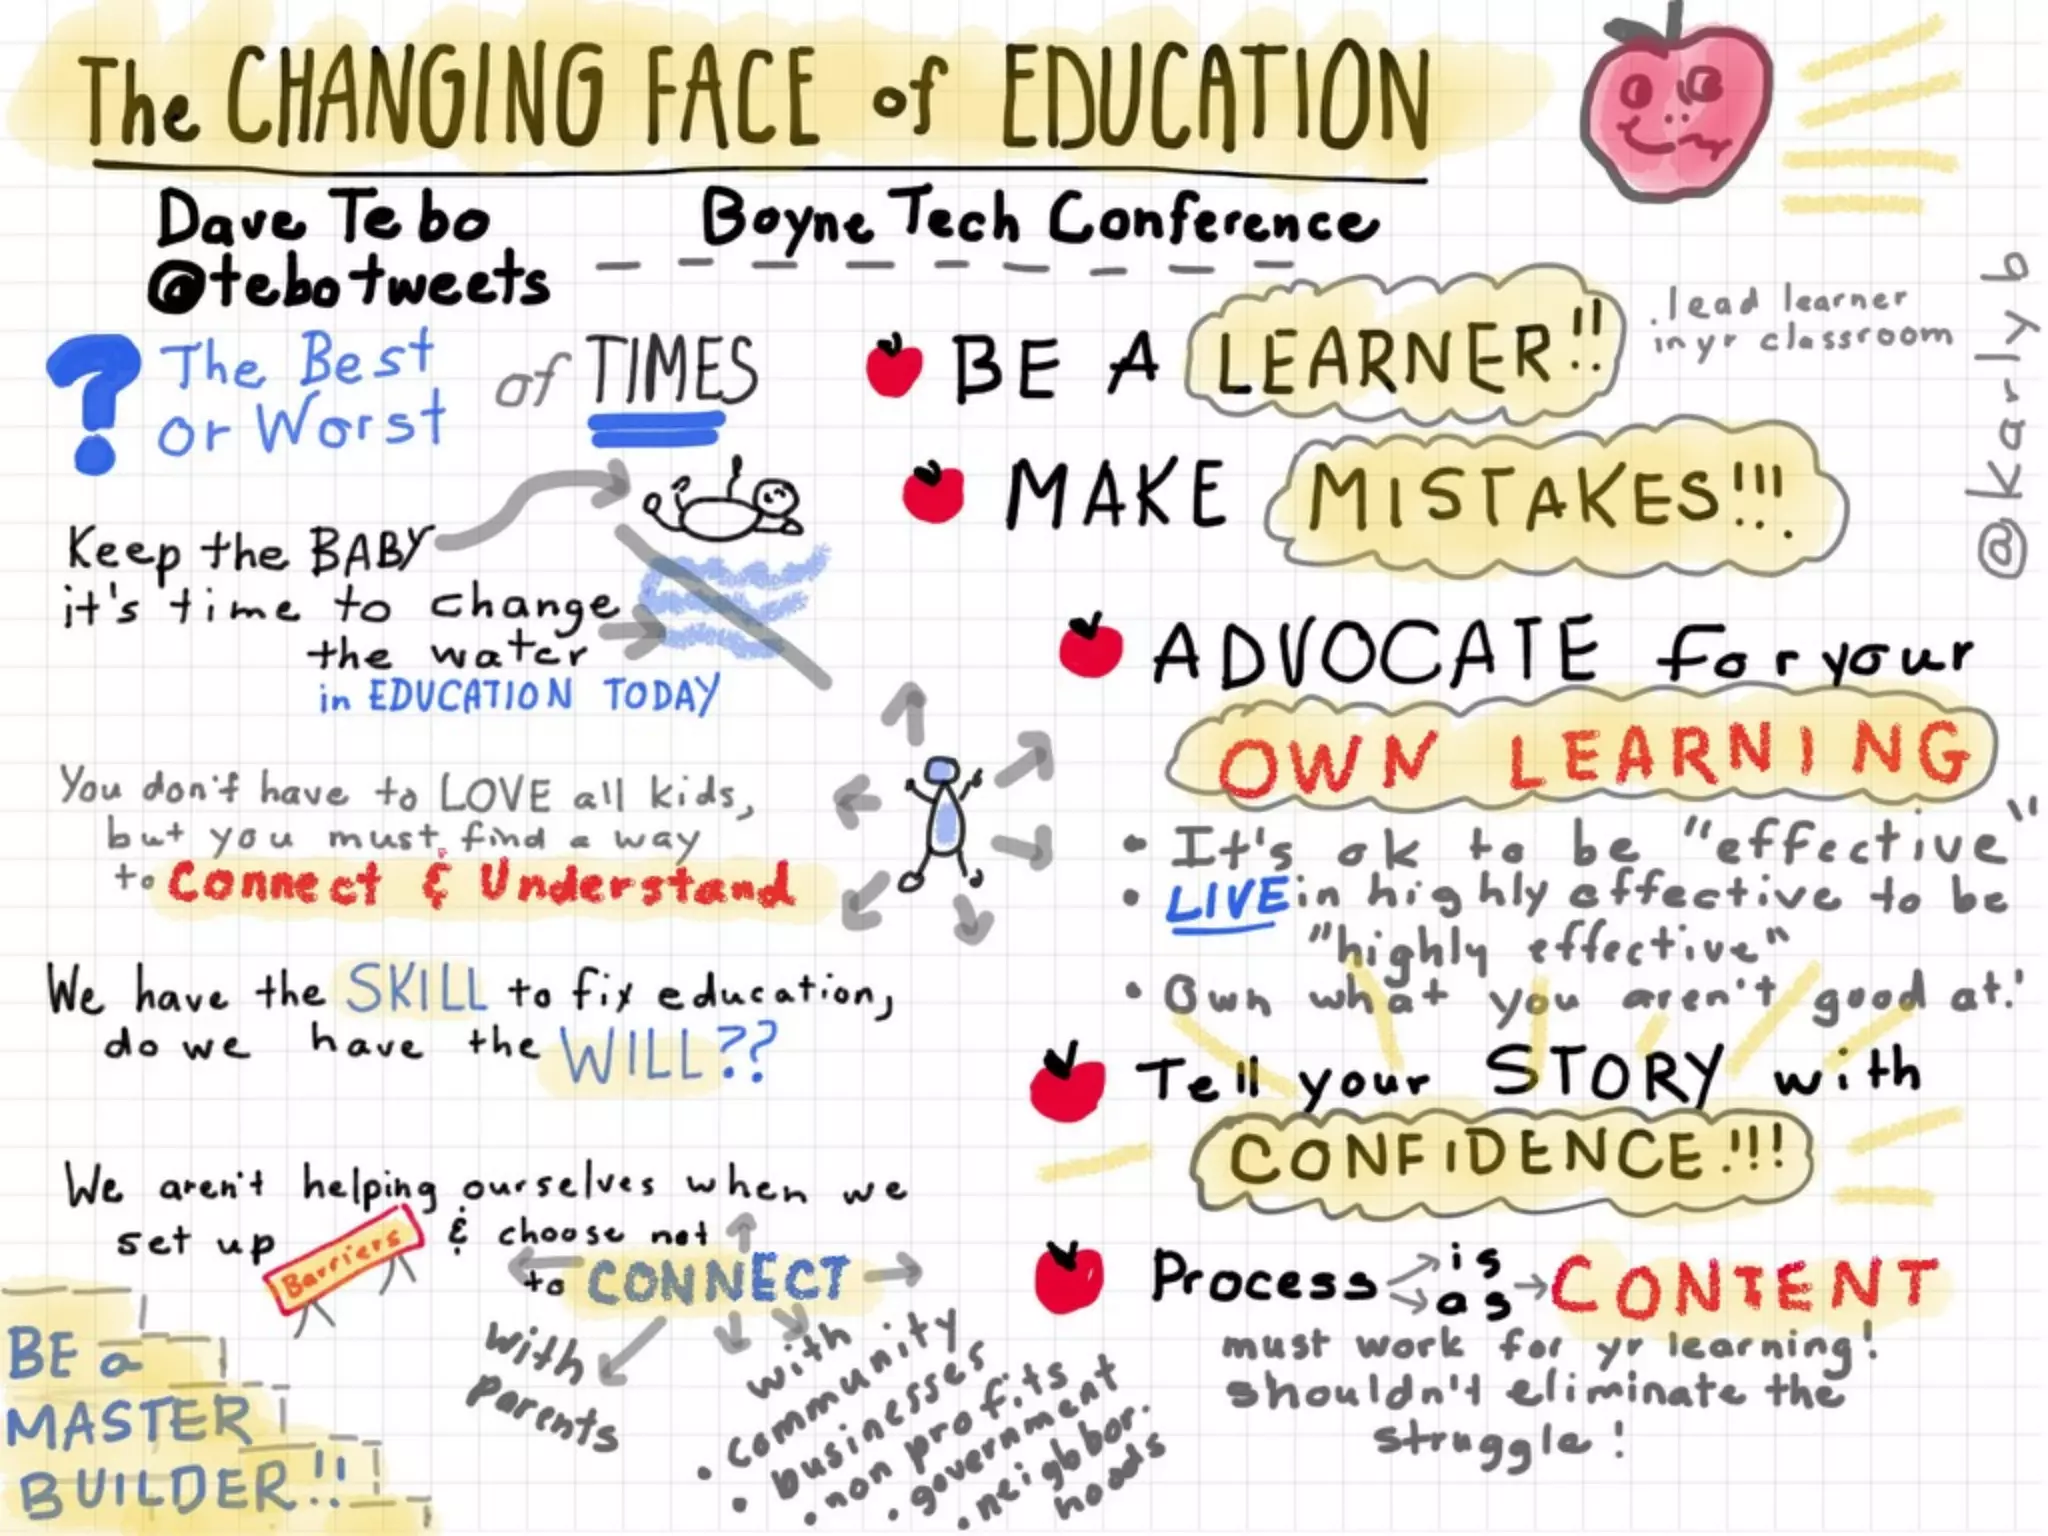 The CHANGING FACE of EDUCATION
Dave Tebo
@tebotweets
Boyne Tech Conference
@karlyb
? The Best
or Worst
of TIMES
Keep the BABY
it's time to change
the water
in EDUCATION TODAY
You don't have to LOVE all kids,
but you must find a way
to Connect & Understand
We have the SKILL to fix education,
do we have the WILL??
We aren't helping ourselves when we
set up Barriers & choose not
to CONNECT
with
parents
with
• community
• businesses
• non profits
• government
• neighbor.
hoods
BE a
MASTER
BUILDER!!
BE A LEARNER!!
. lead learner
in yr classroom
MAKE MISTAKES!!!
ADVOCATE for your
OWN LEARNING
• It's ok to be "effective"
• LIVE in highly effective to be
"highly effective"
• Own what you aren't good at!
Tell your STORY with
CONFIDENCE!!!
Process is
as
CONTENT
must work for yr learning!
shouldn't eliminate the
struggle!